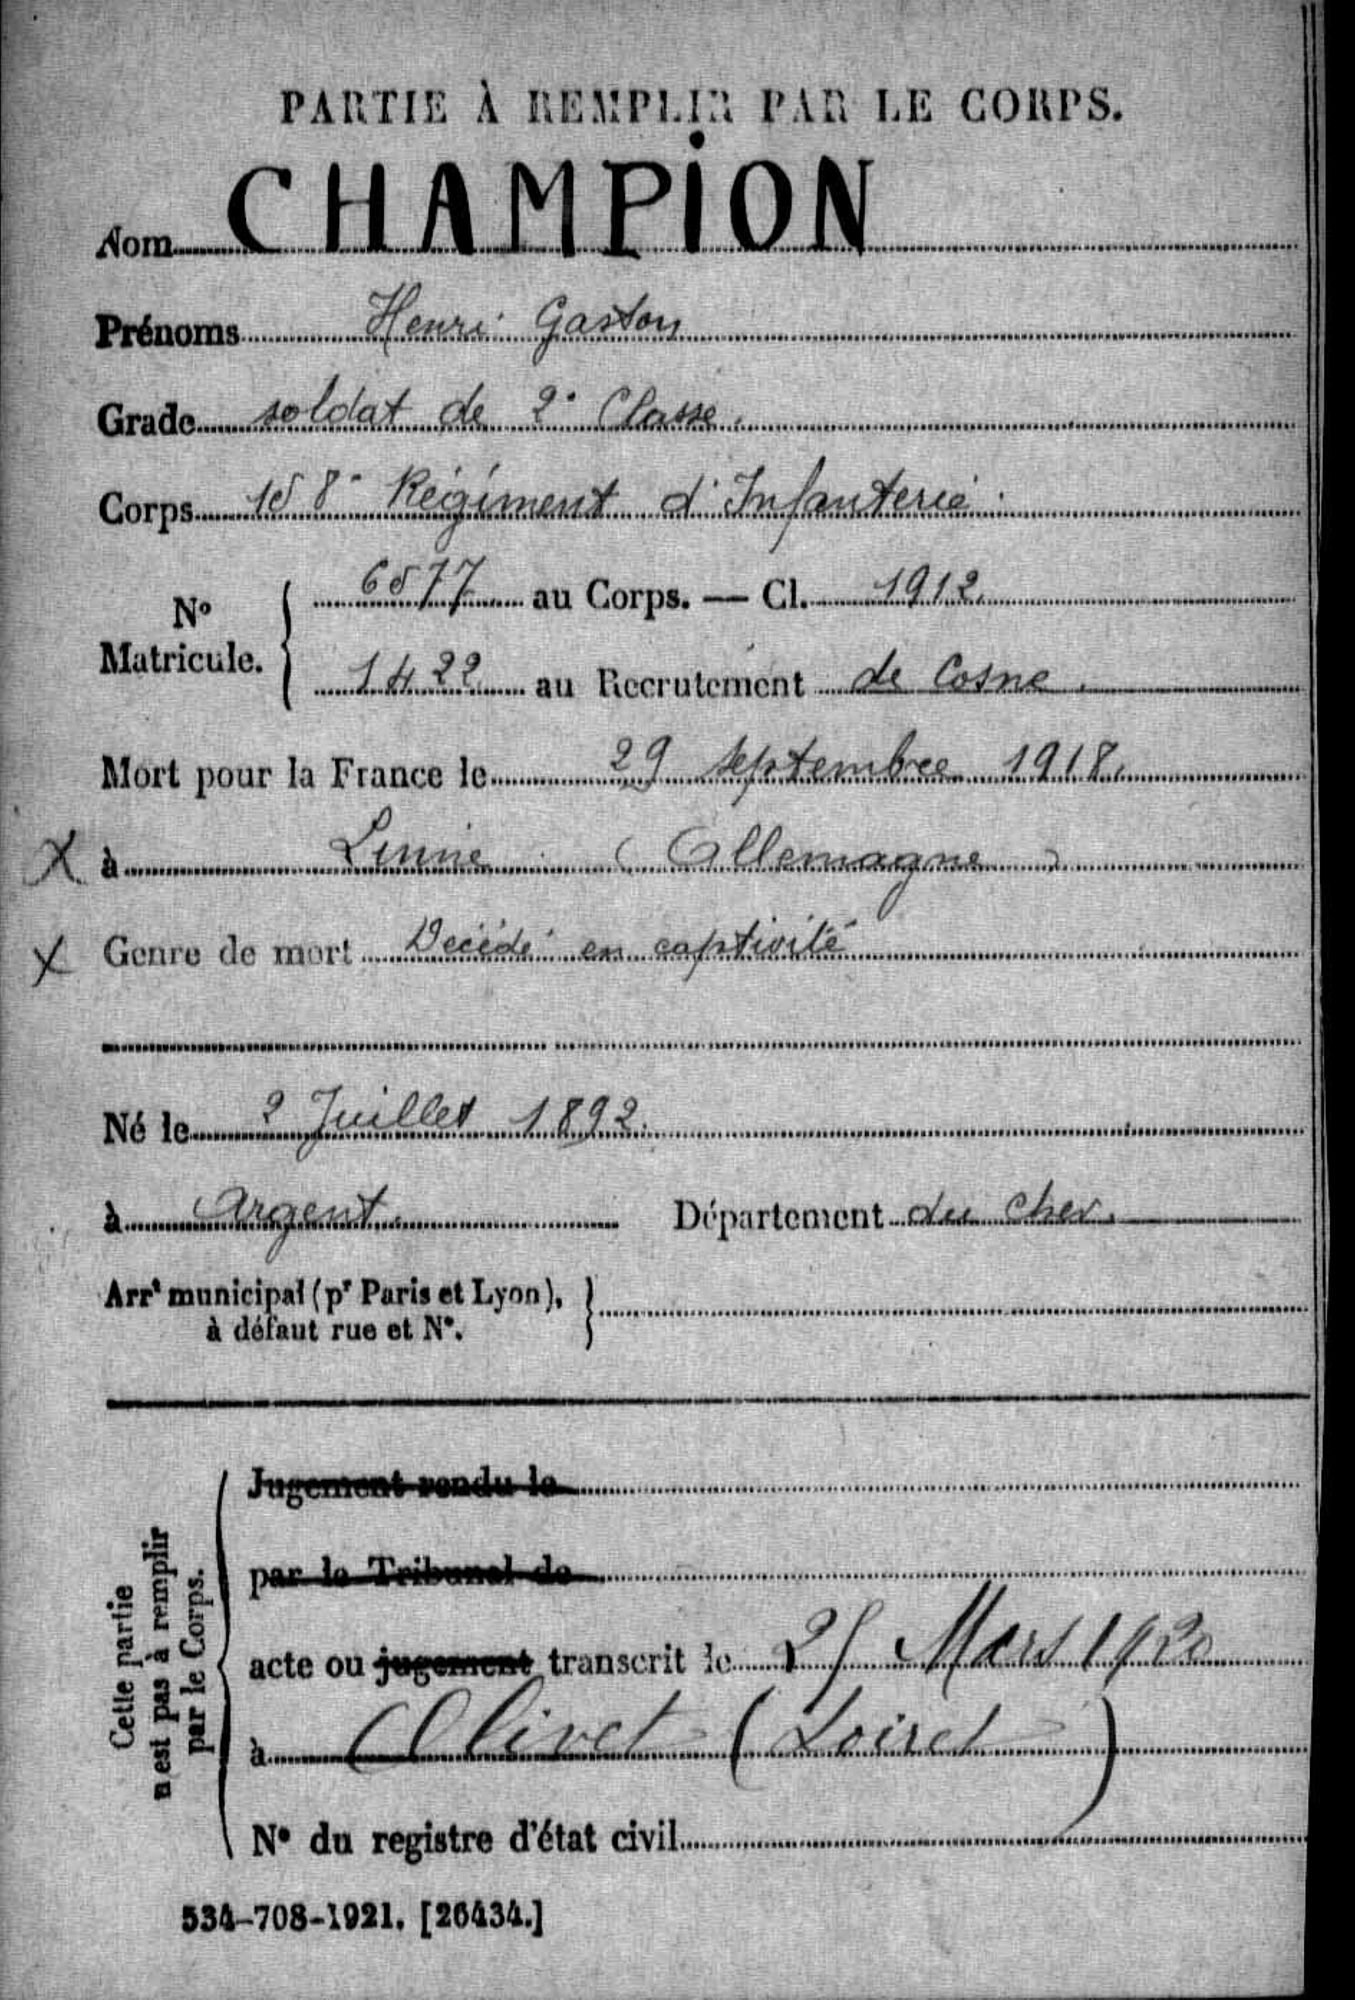 PARTIE À REMPLIR PAR LE CORPS.
Nom CHAMPION
Prénoms Henri Gaston
Grade soldat de 2e Classe.
Corps 158e Régiment d'Infanterie.
N° Matricule. 6577 au Corps. — Cl. 1912.
1422 au Recrutement de Cosne.
Mort pour la France le 29 septembre 1918.
X à (Allemagne)
X Genre de mort Décédé en captivité
Né le 2 Juillet 1892.
à Argent. Département du Cher.
Arrt municipal (pr Paris et Lyon),
à défaut rue et N°.
Cette partie
n'est pas à remplir
par le Corps.
Jugement rendu le
par le Tribunal de
acte ou jugement transcrit le 25 Mars 1920
à Olivet (Loiret)
N° du registre d'état civil
534-708-1921. [26434.]